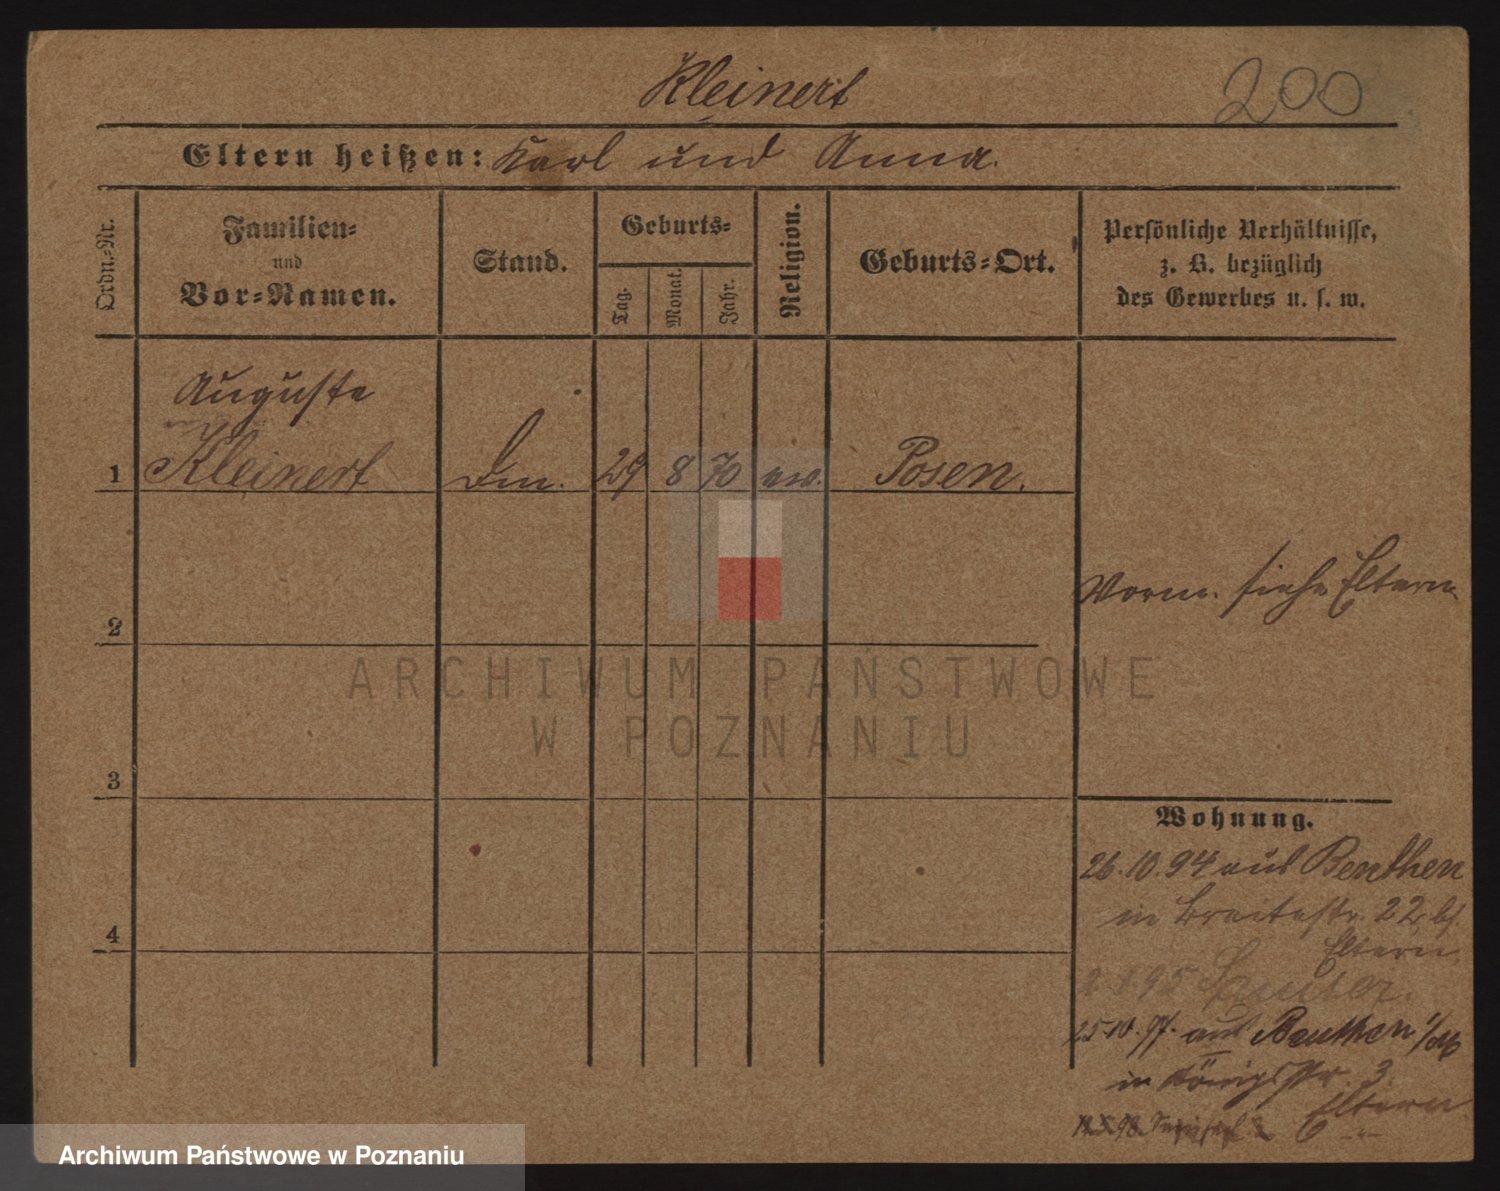 Kleinert
200
Eltern heißen: Karl und Anna.
Ordn.-Nr.
Familien-
und
Vor-Namen.
Stand.
Geburts-
Tag.
Monat.
Jahr.
Religion.
Geburts-Ort.
Persönliche Verhältnisse,
z. B. bezüglich
des Gewerbes u. s. w.
Auguste
1 Kleinert
29 8 70 ev. Posen.
2
Vorm. siehe Eltern
ARCHIWUM PAŃSTWOWE
W POZNANIU
3
Wohnung.
26.10.94 aus Beuthen
in Breitestr. 22 b/
4
Eltern
1.95
25.10.97. aus Beuthen
in Königsstr. 3
Eltern
Archiwum Państwowe w Poznaniu